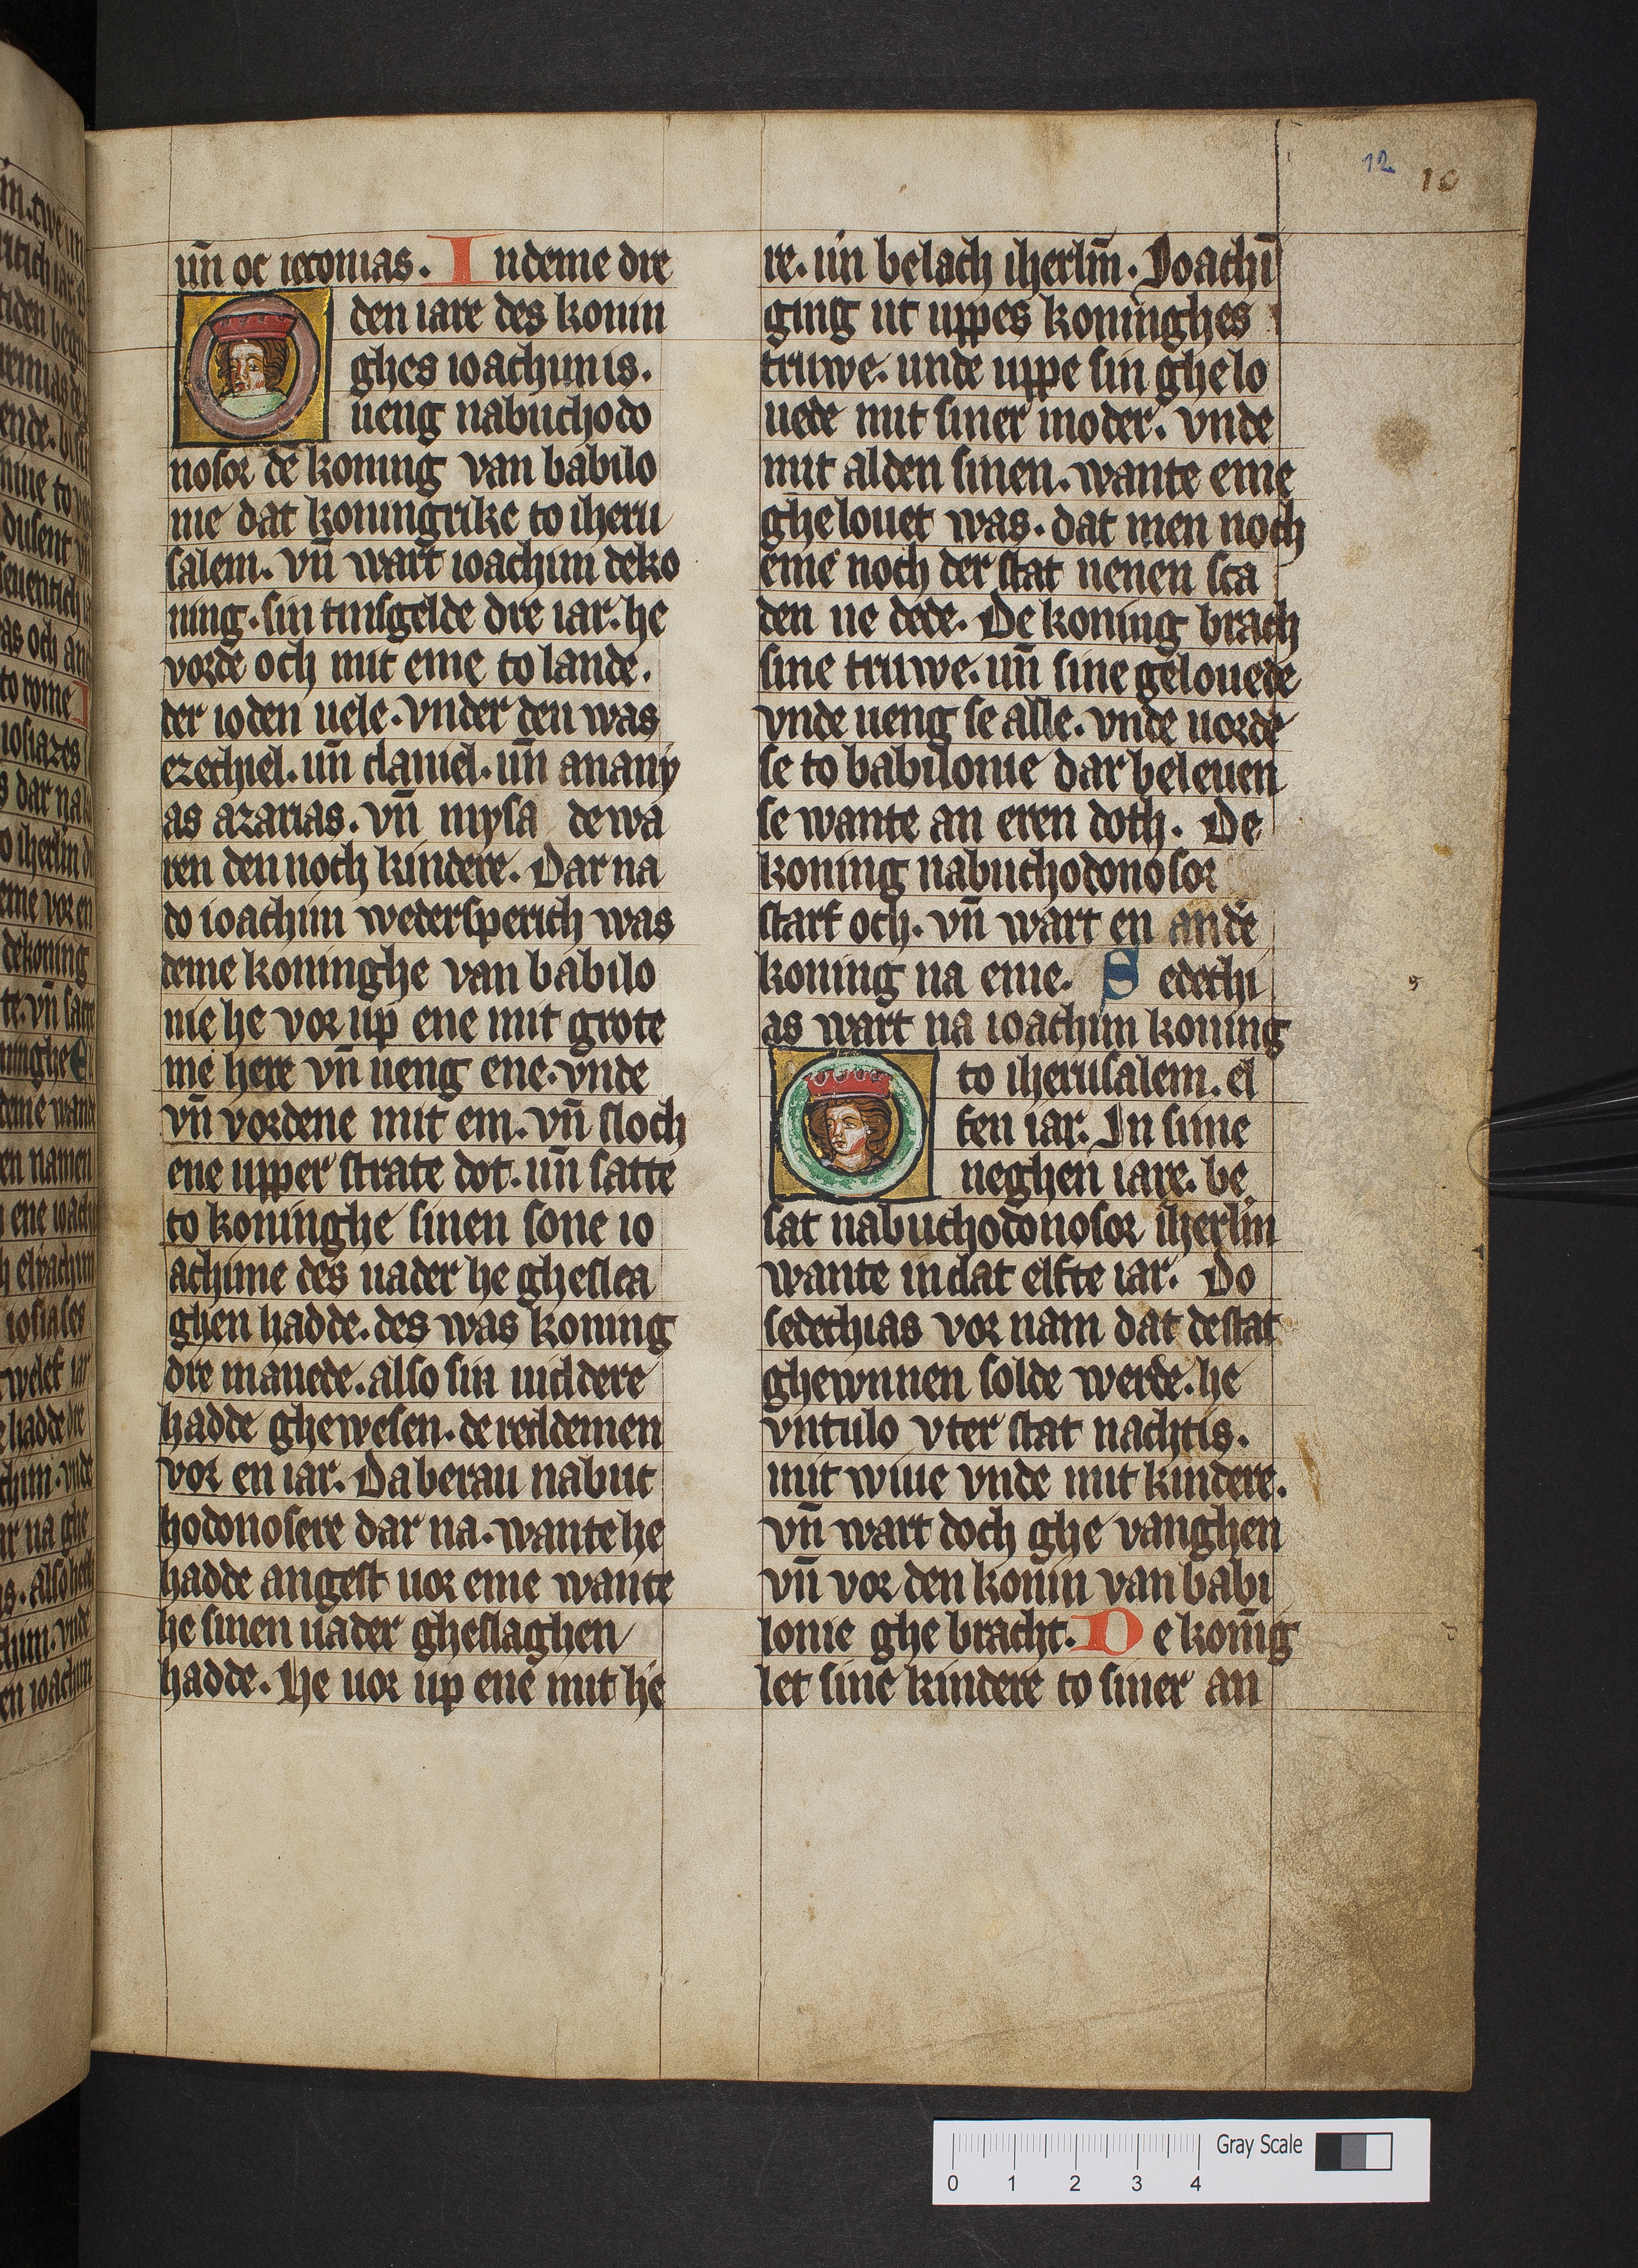 12
10
un̄ oc ieconias. Indeme dre
den iare des konin
ghes ioachimis.
ueng nabuchodo
nosor de koning van babilo
nie dat koningrike to iheru
salem. vn̄ wart ioachim deko
ning. sin tinsgelde dre iar. he
vorde och mit eme to lande.
der ioden uele. vnder den was
ezechiel. un̄ daniel. un̄ anany
as azarias. vn̄ mysa dewa
ren den noch kindere. Dar na
do ioachim wedersperich was
deme koninghe van babilo
nie he vor up ene mit grote
me here vn̄ ueng ene. vnde
vn̄ vordene mit em. vn̄ sloch
ene upper strate dot. un̄ satte
to koninghe sinen sone io
achime des uader he gheslea
ghen hadde. des was koning
dre manede. also sin
hadde ghewesen.
vor en iar. Da berau nabuc
hodonosere dar na. wante he
hadde angest uor eme wante
he sinen uader gheslaghen
hadde. He uor up ene mit he
re. un̄ belach iherlm̄. Joachī
ging ut uppes koninghes
truwe. unde uppe sin ghelo
uede mit siner moder. vnde
mit alden sinen. wante eme
ghelouet was. dat men noch
eme noch der stat nenen sca
den ne dede. De koning brach
sine truwe. un̄ sine gelouede
vnde ueng se alle. vnde uorde
se to babilonie dar beleuen
se wante an eren doth. De
koning nabuchodonosor
starf och. vn̄ wart en ande
koning na eme. Sedechi
as wart na ioachim koning
to iherusalem. el
fen iar. In sime
neghen iare. be
sat nabuchodonosor iherlm̄
wante in dat elfte iar. Do
sedechias vor nam dat destat
ghewnnen solde werde. he
vntulo vter stat nachtis.
mit wiue vnde mit kindere.
vn̄ wart doch ghe vanghen
vn̄ vor den konin van babi
lonie ghe bracht. De konīg
let sine kindere to siner an
Gray Scale
0 1 2 3 4